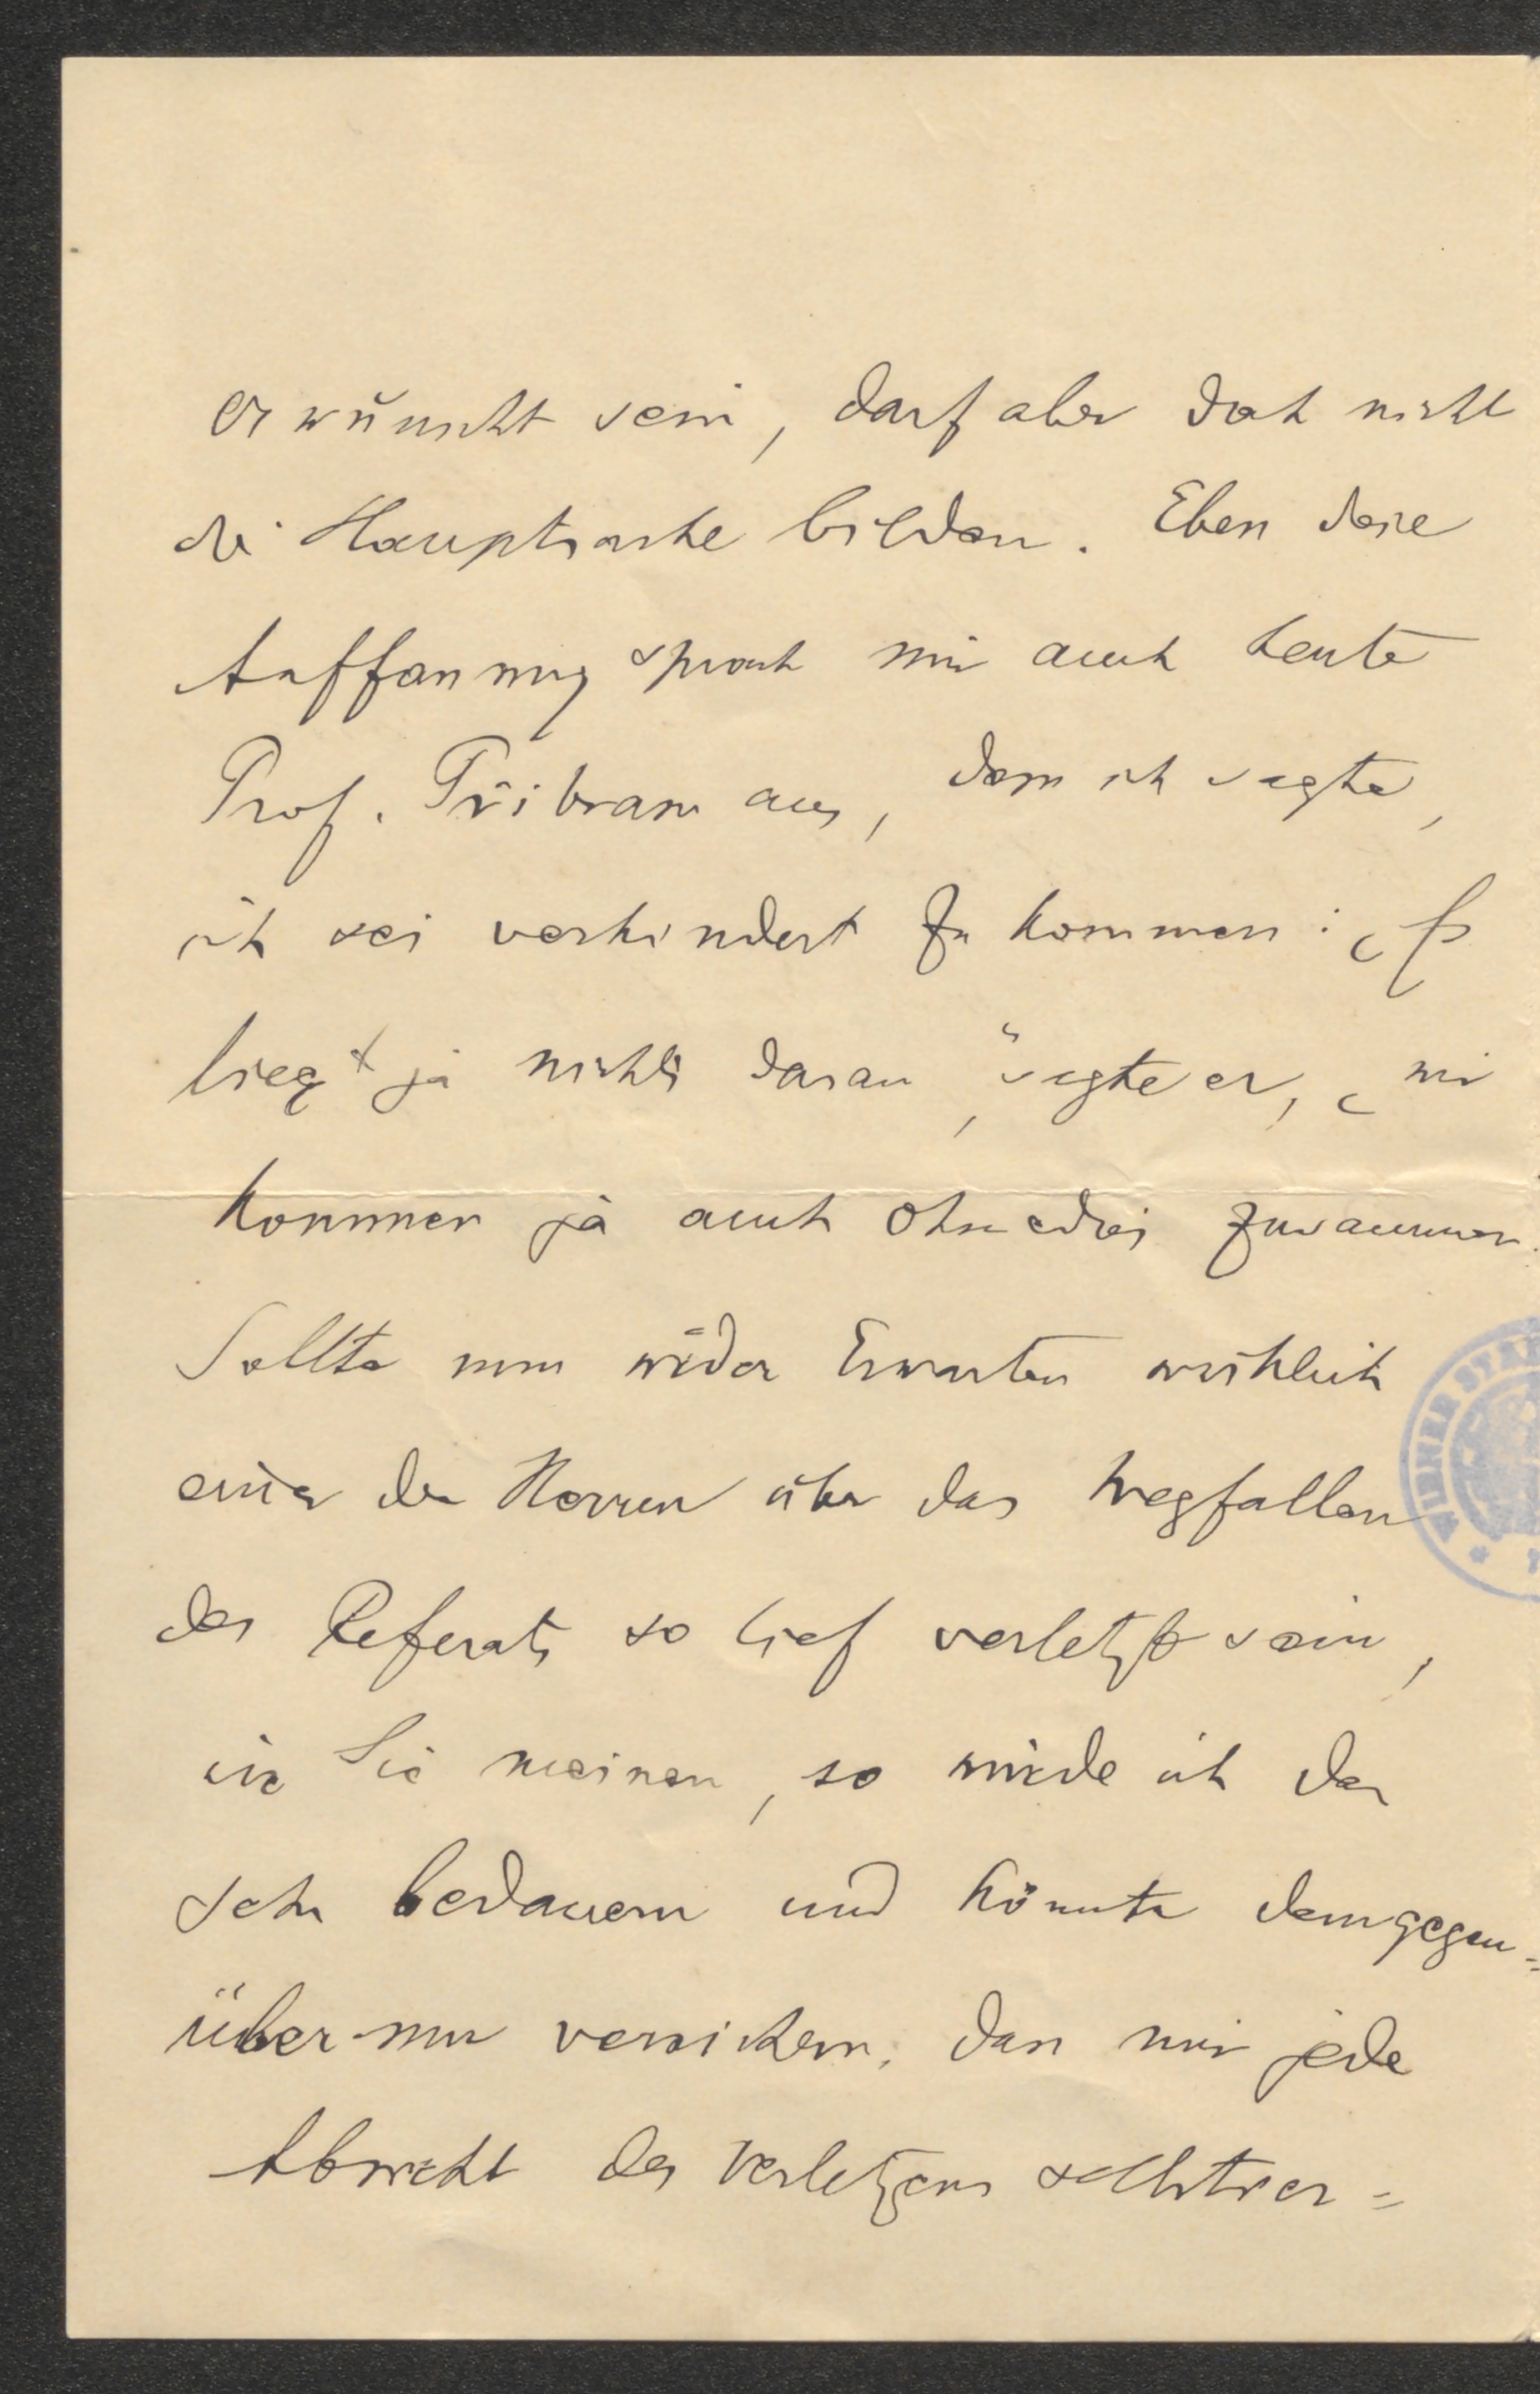 erwünscht sein, darf aber doch nicht
die Hauptsache bilden. Eben diese
Auffassung sprach mir auch heute
Prof. Přibram aus, dem ich sagte,
ich sei verhindert zu kommen: „Es
liegt ja nichts daran“, sagte er, „wir
kommen ja auch ohnedies zusammen.
Sollte nun wider Erwarten wirklich
einer der Herren über das Wegfallen
des Referats so tief verletzt sein,
wie Sie meinen, so würde ich das
sehr bedauern und könnte demgegen=
über nur versichern, dass mir jede
Absicht des Verletzens selbstver=
WIENER